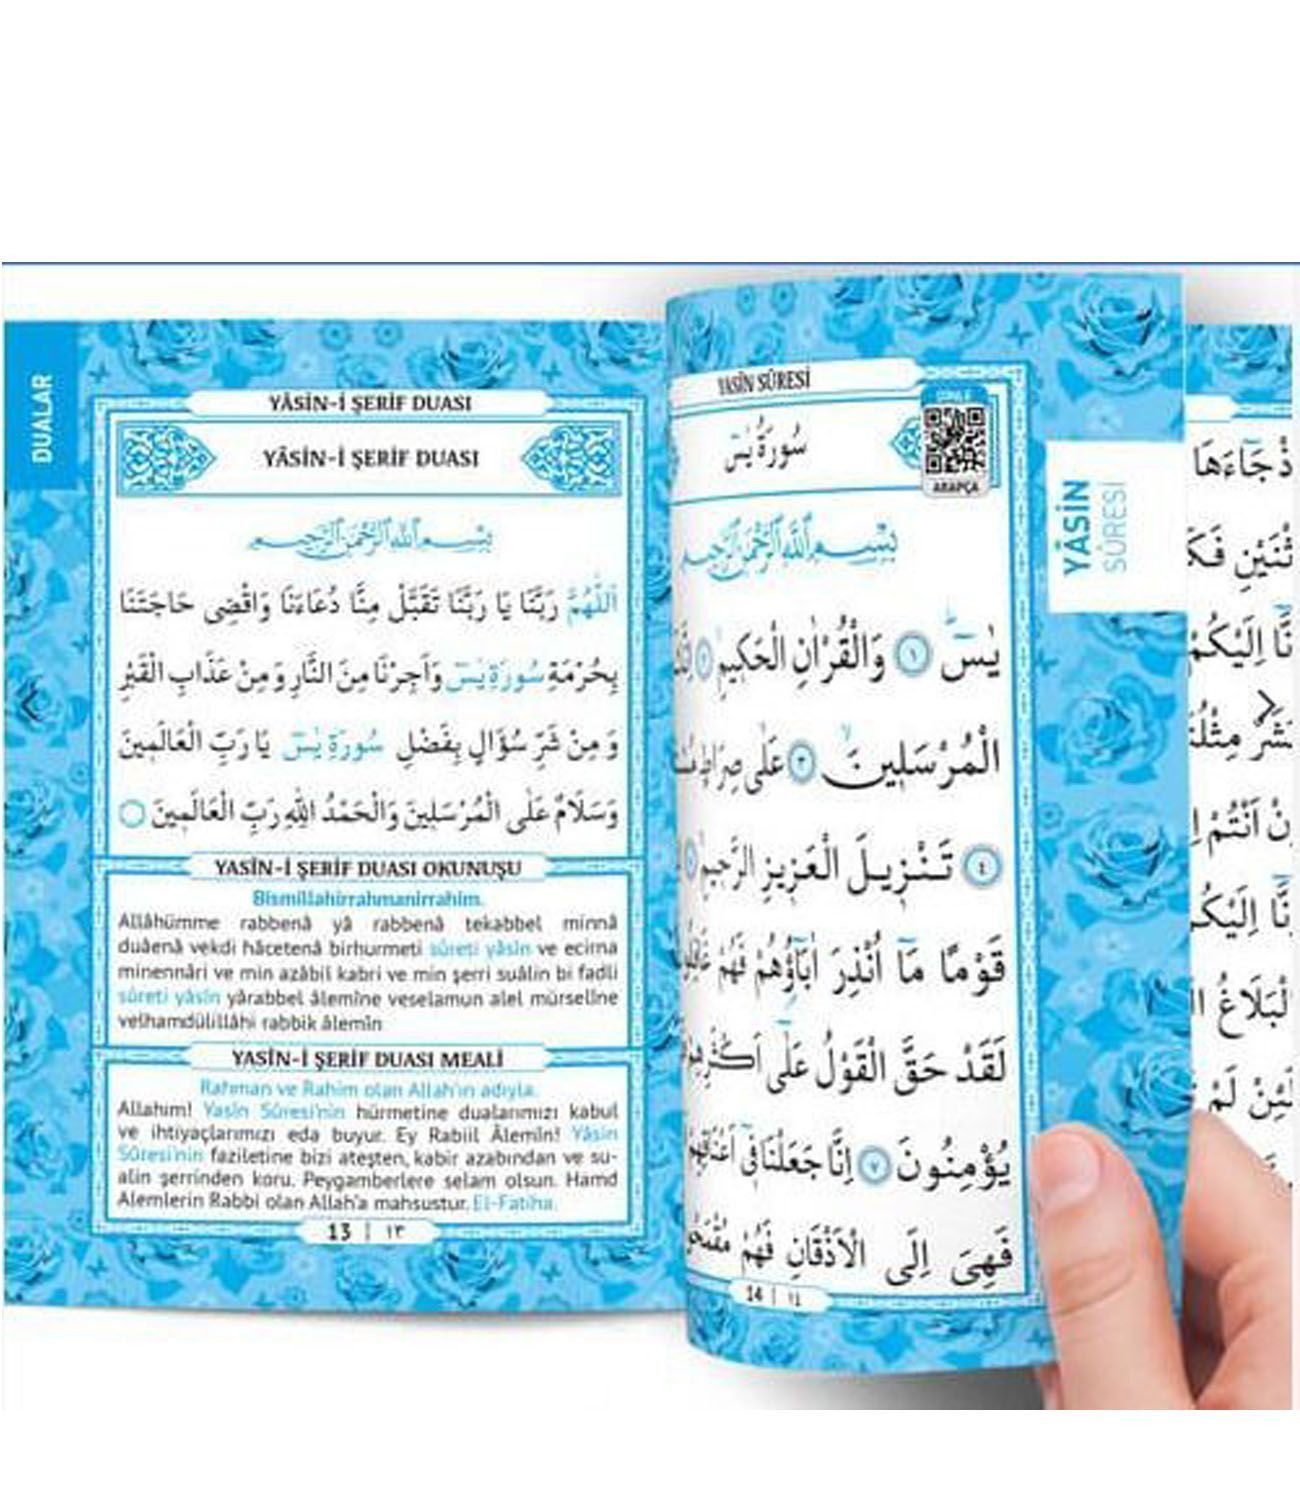 DUALAR
YÂSİN-İ ŞERİF DUASI
YÂSİN-İ ŞERİF DUASI
بِسْمِ اللّٰهِ الرَّحْمٰنِ الرَّحِيمِ
اَللّٰهُمَّ رَبَّنَا يَا رَبَّنَا تَقَبَّلْ مِنَّا دُعَاءَنَا وَاقْضِى حَاجَتَنَا
بِحُرْمَةِ سُورَةِ يٰسٓ وَاَجِرْنَا مِنَ النَّارِ وَمِنْ عَذَابِ الْقَبْرِ
وَمِنْ شَرِّ سُؤَالٍ بِفَضْلِ سُورَةِ يٰسٓ يَا رَبَّ الْعَالَمِينَ
وَسَلَامٌ عَلَى الْمُرْسَلِينَ وَالْحَمْدُ لِلّٰهِ رَبِّ الْعَالَمِينَ
YASİN-İ ŞERİF DUASI OKUNUŞU
Bismillahirrahmanirrahim.
Allâhümme rabbenâ yâ rabbenâ tekabbel minnâ
duâenâ vekdi hâcetenâ birhurmeti sûreti yâsîn ve ecirna
minennâri ve min azâbil kabri ve min şerri suâlin bi fadli
sûreti yâsîn yârabbel âlemîne veselamun alel mürselîne
velhamdülillâhi rabbik âlemîn
YASİN-İ ŞERİF DUASI MEALİ
Rahman ve Rahim olan Allah'ın adıyla.
Allahım! Yasin Sûresi'nin hürmetine dualarımızı kabul
ve ihtiyaçlarımızı eda buyur. Ey Rabiil Âlemîn! Yâsin
Sûresi'nin faziletine bizi ateşten, kabir azabından ve su-
alin şerrinden koru. Peygamberlere selam olsun. Hamd
Alemlerin Rabbi olan Allah'a mahsustur. El-Fatiha.
13 | ١٣
YASİN SÛRESİ
سُورَةُ يٰسٓ
ARAPÇA
بِسْمِ اللّٰهِ الرَّحْمٰنِ الرَّحِيمِ
يٰسٓ ١ وَالْقُرْاٰنِ الْحَكِيمِ ٢
الْمُرْسَلِينَ ٣ عَلٰى صِرَاطٍ
٤ تَنْزِيلَ الْعَزِيزِ الرَّحِيمِ
قَوْمًا مَٓا اُنْذِرَ اٰبَٓاؤُهُمْ فَهُمْ
لَقَدْ حَقَّ الْقَوْلُ عَلٰٓى اَكْثَرِهِمْ
يُؤْمِنُونَ ٧ اِنَّا جَعَلْنَا فٖٓى اَعْنَاقِهِمْ
فَهِىَ اِلَى الْاَذْقَانِ فَهُمْ
14 | ١٤
YÂSİN
SÛRESİ
جَٓاءَهَا
اِلَيْكُمْ
اَنْتُمْ